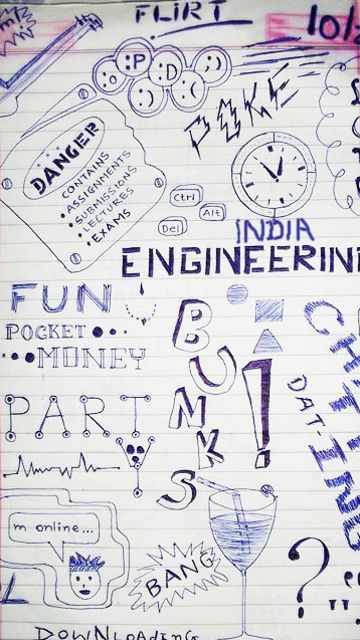 FLIRT
10/
:o :P :D ;)
:) (:
POKE
DANGER
CONTAINS
• ASSIGNMENTS
• SUBMISSIONS
• LECTURES
• EXAMS
Ctrl
Alt
Del
INDIA
ENGINEERIN
FUN
POCKET
MONEY
BUNKS!
PARTY
DAT-
m online...
BANG
?
DOWNLOADING